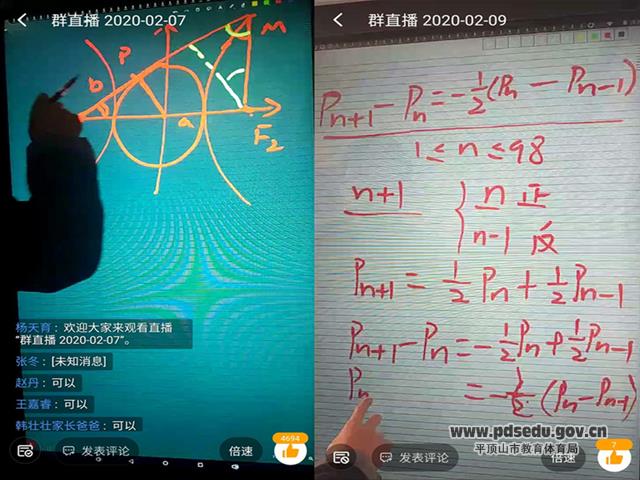 群直播 2020-02-07
M
P
b
a
F₂
杨天育：欢迎大家来观看直播
“群直播 2020-02-07”。
张冬：[未知消息]
赵丹：可以
王嘉睿：可以
韩壮壮家长爸爸：可以
发表评论
倍速
4694
群直播 2020-02-09
Pn+1 - Pn = -1/2(Pn - Pn-1)
1 ≤ n ≤ 98
n+1 { n 正
n-1 反
Pn+1 = 1/2 Pn + 1/2 Pn-1
Pn+1 - Pn = -1/2 Pn + 1/2 Pn-1
Pn = -1/2 (Pn - Pn-1)
发表评论
倍速
7
www.pdsedu.gov.cn
平顶山市教育体育局